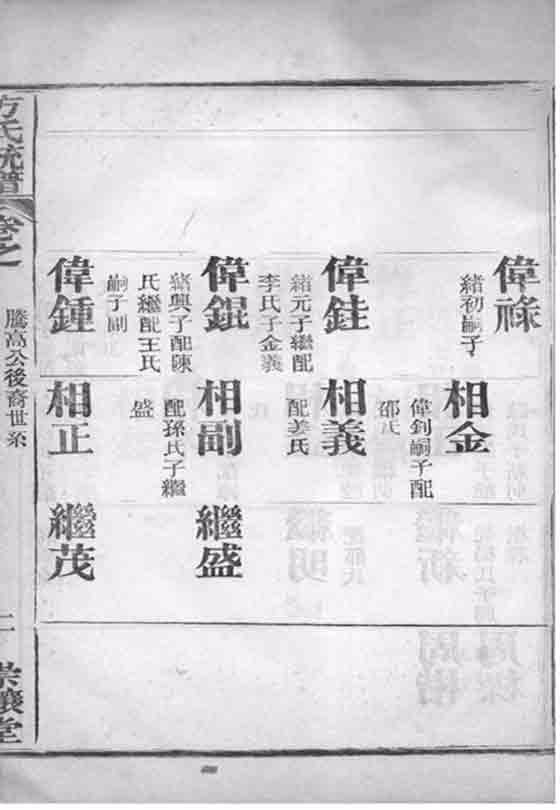 偉祿
緒礽嗣子
相金
偉釗嗣子配
邵氏
偉銈
緒元子繼配
李氏子金義
相義
配姜氏
偉錕
緒興子配陳
氏繼配王氏
嗣子副
相副
配孫氏子繼
盛
繼盛
偉鍾
相正
繼茂
方氏統譜
卷之
騰高公後裔世系
二
崇讓堂